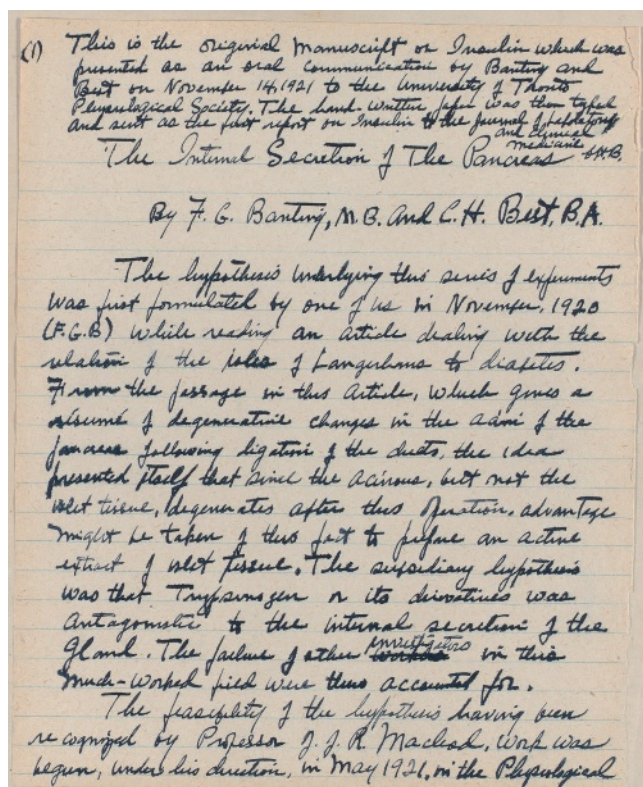 (1) This is the original Manuscript on Insulin which was
presented as an oral communication by Banting and
Best on November 14, 1921 to the University of Toronto
Physiological Society. The hand written paper was then typed
and sent as the first report on Insulin to the Journal of Laboratory
and clinical
medicine
The Internal Secretion of The Pancreas
By F. G. Banting, M.B. And C. H. Best, B.A.
The hypothesis underlying this series of experiments
was first formulated by one of us in November, 1920
(F.G.B) while reading an article dealing with the
relation of the isles of Langerhans to diabetes.
From the passage in this article, which gives a
résumé of degenerative changes in the acini of the
pancreas following ligation of the ducts, the idea
presented itself that since the acinous, but not the
islet tissue, degenerates after this operation, advantage
might be taken of this fact to prepare an active
extract of islet tissue. The subsidiary hypothesis
was that Trypsinogen or its derivatives was
antagonistic to the internal secretion of the
Gland. The failure of other investigators in this
much-worked field were thus accounted for.
The feasibility of the hypothesis having been
recognized by Professor J. J. R. Macleod, work was
begun, under his direction, in May 1921, in the Physiological